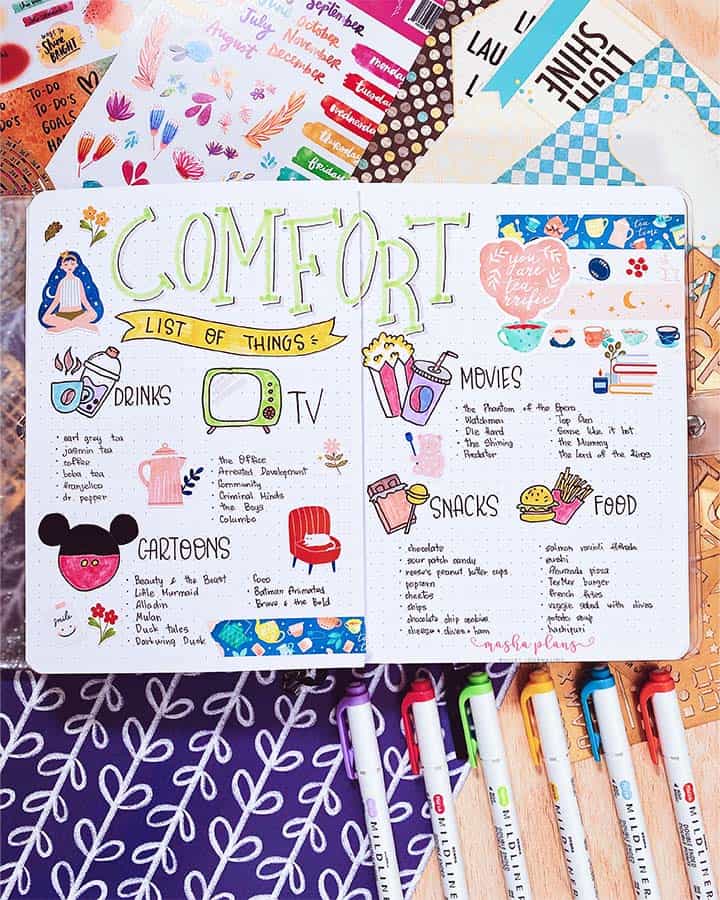 September
June
October
July
November
August
December
monday
tuesday
wednesday
thursday
friday
WAYS TO
SHINE BRIGHT
TO-DO
TO-DO'S
GOALS
LIGHT
SHINE
COMFORT
LIST OF THINGS
tea time
you are
tea
rrific
DRINKS
earl grey tea
jasmin tea
coffee
boba tea
franjelico
dr. pepper
TV
the Office
Arrested Development
Community
Criminal Minds
the Boys
Columbo
CARTOONS
Beauty & the Beast
Little Murmaid
Aladin
Mulan
Duck tales
Darkwing Duck
Coco
Batman Animated
Brave & the Bold
smile
MOVIES
the Phantom of the Opera
Watchmen
Die Hard
the Shining
Predator
Top Gun
Some like it hot
the Mummy
the Lord of the Rings
SNACKS
chocolate
sour patch candy
reese's peanut butter cups
popcorn
cheetos
chips
chocolate chip cookies
cheese + olives + ham
FOOD
sushi
french fries
veggie salad with olives
potato soup
hachipuri
masha plans
MILDLINER
MILDLINER
MILDLINER
MILDLINER
MILDLINER
MILDLINER